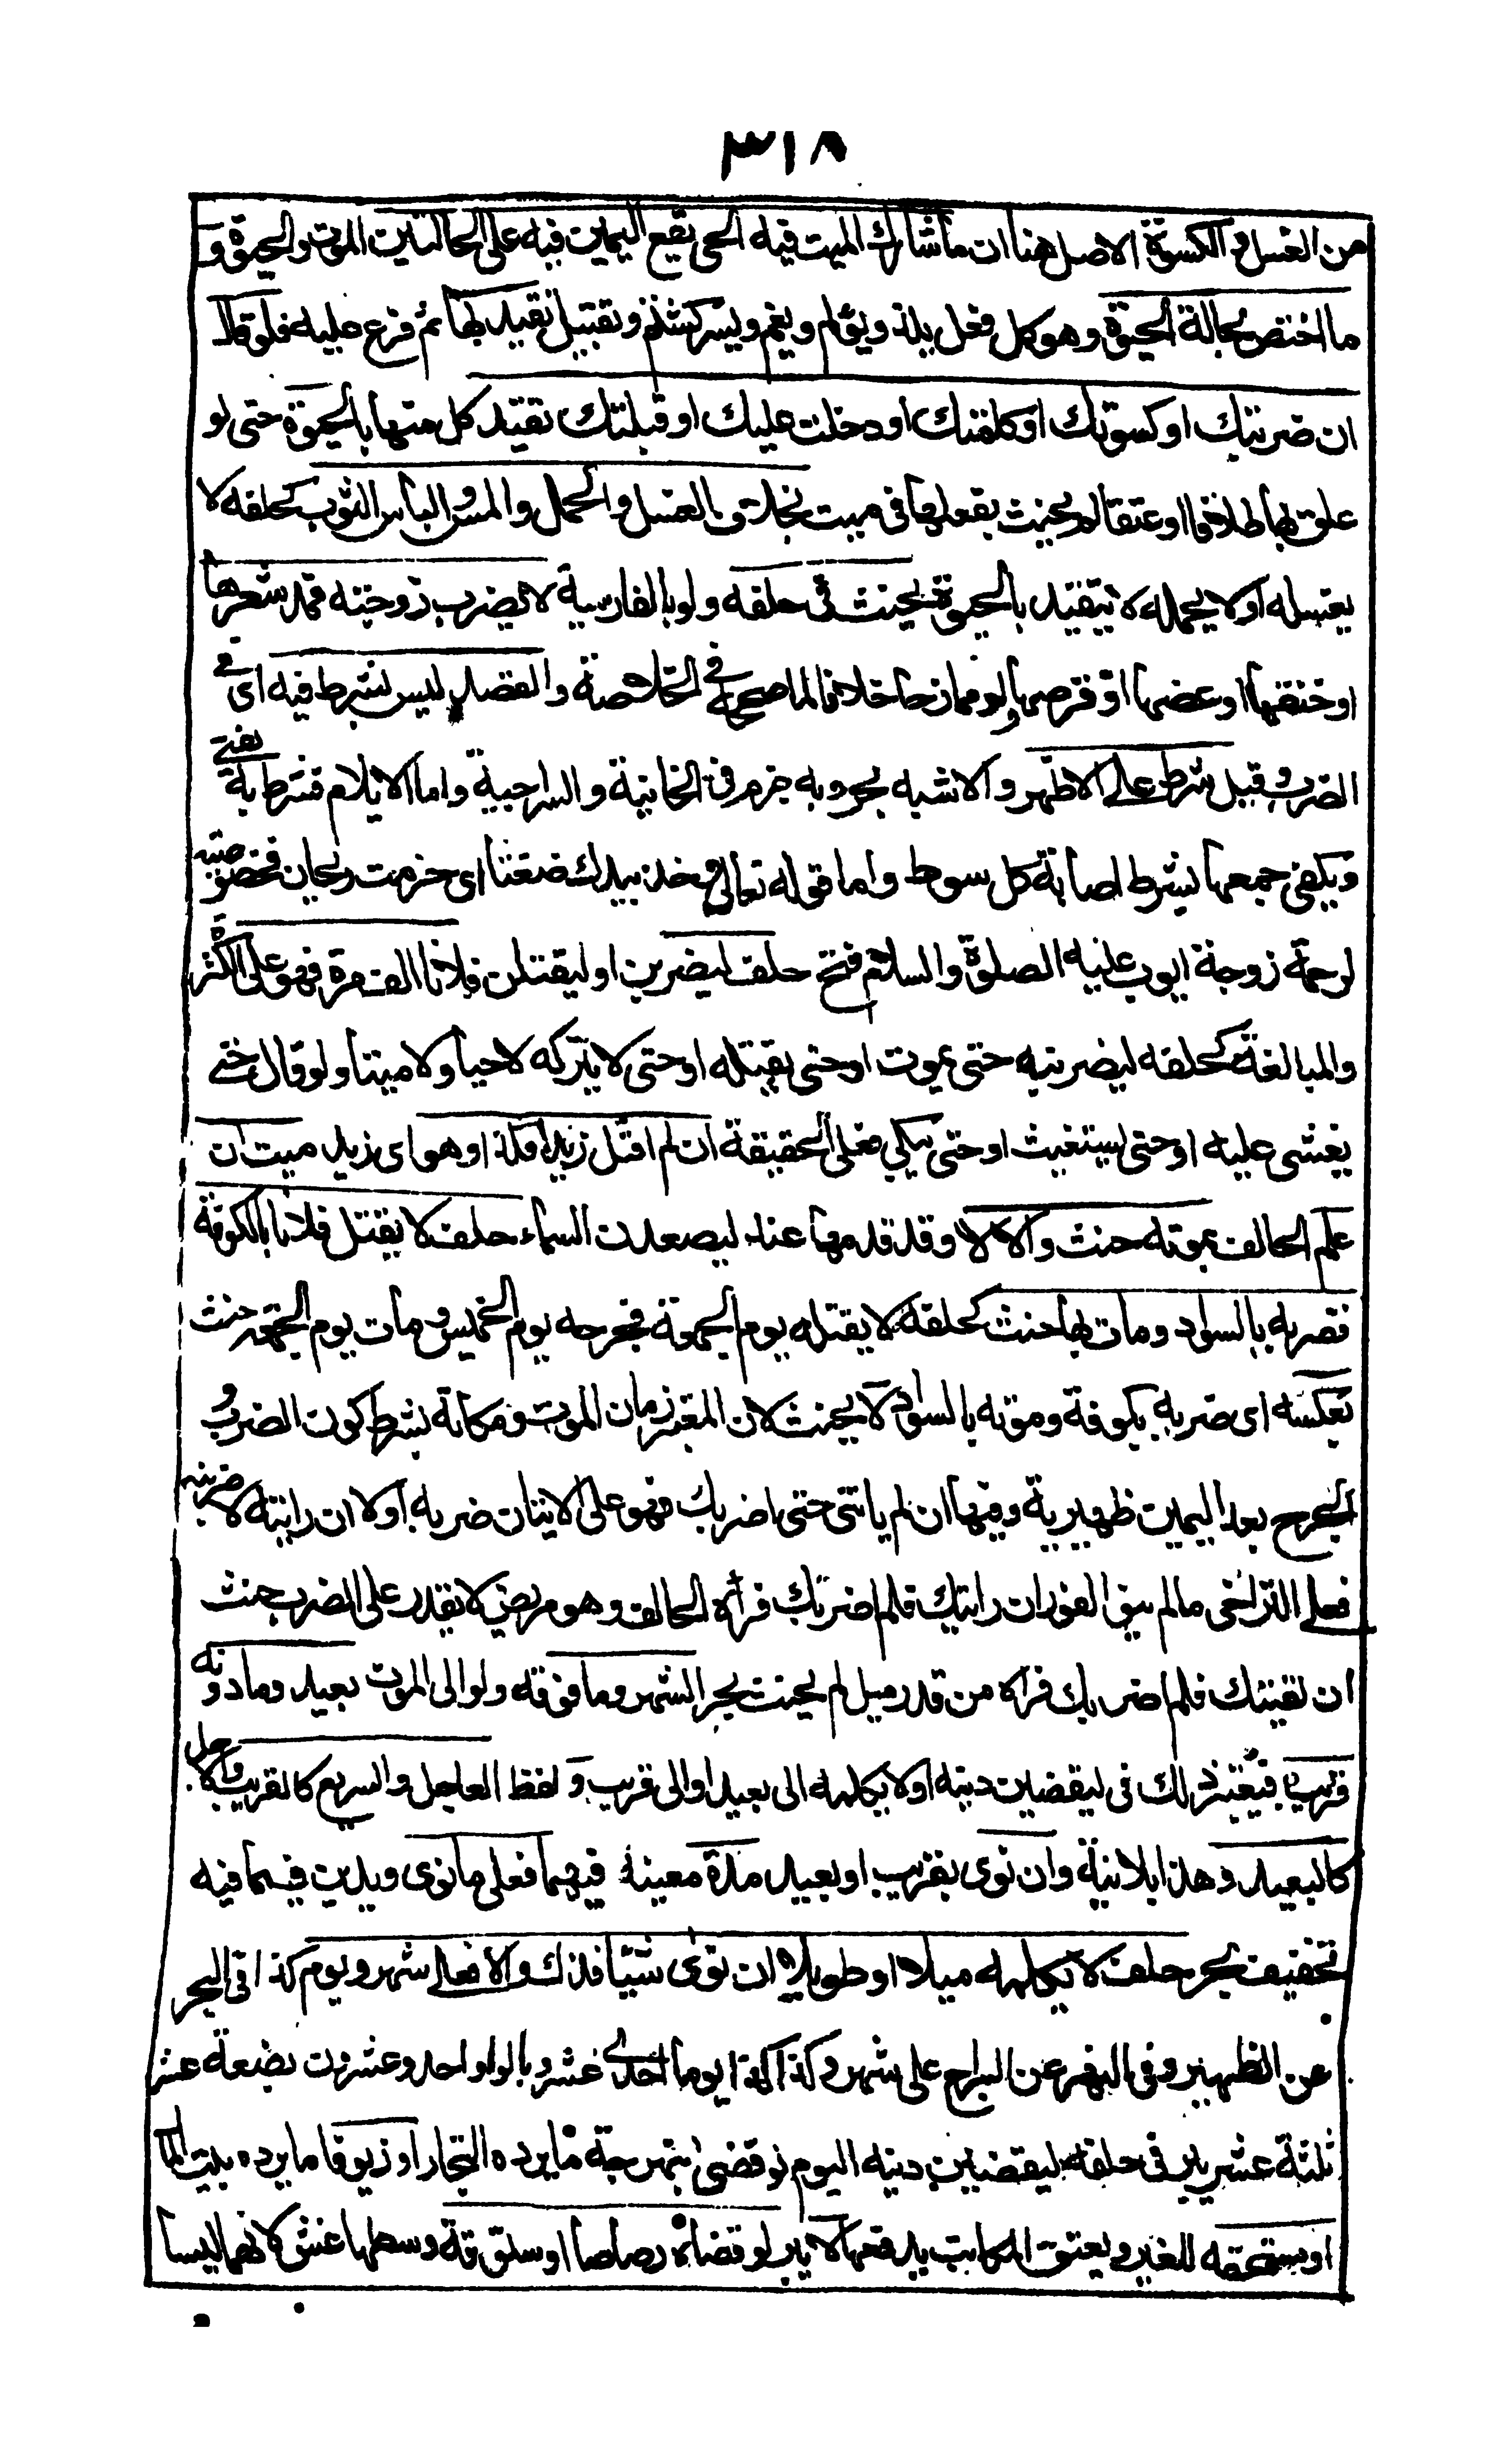 ٣١٨
من الغسل والكسوة الاصل هنا ان ما شارك الميت فيه الحى يقع اليمين فيه على الحالتين الموت والحيوة و
ما اختص بحالة الحيوة وهو كل فعل يلذ ويؤلم ويغم ويسر كشتم وتقبيل تقيد بها ثم فرع عليه فلو قال
ان ضربتك او كسوتك او كلمتك او دخلت عليك او قبلتك تقيد كل منها بالحيوة حتى لو
علق بها طلاقا او عتقا لم يحنث بفعلها فى ميت بخلاف الغسل والحمل والمس والباس الثوب كحلفه لا
يغسله او لا يحمله لا يتقيد بالحيوة يحنث فى حلفه ولو بالفارسية لا يضرب زوجته فمد شعرها
او خنقها او عضها او قرصها ولو ممازحا خلافا لما صححه فى الخلاصة والقصد ليس بشرط فيه اى فى
الضرب وقيل شرط على الاظهر والاشبه بحر وبه جزم فى الخانية والسراجية واما الايلام فشرط به يفتى
ويكفى جمعها بشرط اصابة كل سوط واما قوله تعالى وخذ بيدك ضغثا اى حزمت ريحان فخصوصيته
لرحمة زوجة ايوب عليه الصلوة والسلام فتح حلف ليضربن او ليقتلن فلانا الف مرة فهو على الكثرة
والمبالغة كحلفه ليضربنه حتى يموت او حتى يقتله او حتى لا يتركه لا حيا ولا ميتا ولو قال حتى
يغشى عليه او حتى يستغيث او حتى يبكى فعلى الحقيقة ان لم اقتل زيدا فكذا وهو اى زيد ميت ان
علم الحالف بموته حنث والا لا وقد قدمها عند ليصعدن السماء حلف لا يقتل فلانا بالكوفة
فضربه بالسواد ومات بها حنث كحلفه لا يقتله يوم الجمعة فجرحه يوم الخميس ومات يوم الجمعه حنث
بعكسه اى ضربه بكوفة وموته بالسواد لا يحنث لان المعتبر زمان الموت ومكانه بشرط كون الضرب و
الجرح بعد اليمين ظهيرية وفيها ان لم يأتنى حتى اضربك فهو على الاتيان ضربه او لا ان رايته لاضربنه
فعلى التراخى ما لم ينو الفور ان رايتك فلم اضربك فرآه الحالف وهو مريض لا يقدر على الضرب حنث
ان لقيتك فلم اضربك فرآه من قدر ميل لم يحنث بحر الشهر وما فوقه ولو الى الموت بعيد وما دونه
قريب فيعتبر ذلك فى ليقضين دينه او لا يكلمه الى بعيد او الى قريب و لفظ العاجل والسريع كالقريب والآجل
كالبعيد وهذا بلا نية وان نوى بقريب او بعيد مدة معينة فيهما فعلى ما نوى ويدين فيما فيه
تخفيف بحر حلف لا يكلمه ميلا او طويلا ان نوى شيئا فذلك والا فعلى شهر ويوم كذا فى البحر
عن الظهير وفى النهر عن السراج على شهر وكذا كذا يوما احدى عشر وبالواو احد وعشرون بضعة عشر
ثلثة عشر بر فى حلفه ليقضين دينه اليوم لو قضى نبهرجة ما يرده التجار او زيوفا ما يرده بيت المال
او مستحقه للغير ويعتق المكاتب بدفعها لا يبر لو قضاه رصاصا او ستوقة وسطها غش لانهما ليسا